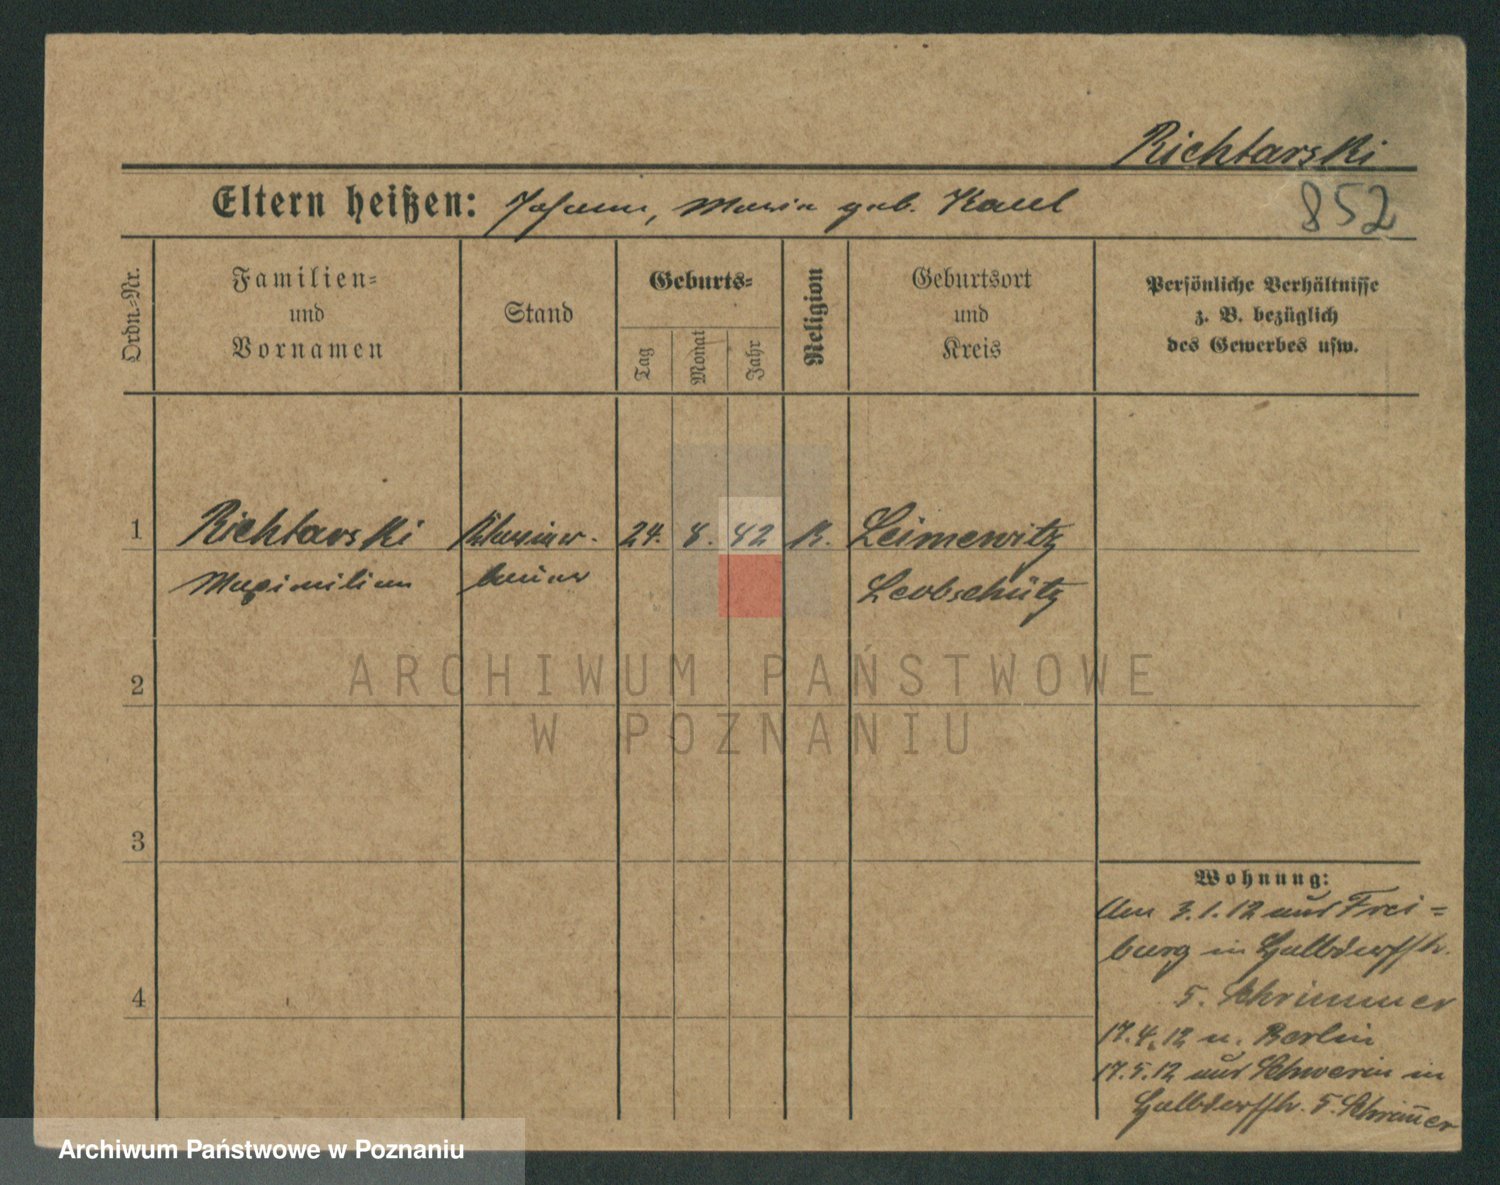 Richtarski
Eltern heißen: Johann, Maria geb. Kaul
852
Ordn.-Nr.
Familien- und Vornamen
Stand
Geburts-
Tag
Monat
Jahr
Religion
Geburtsort und Kreis
Persönliche Verhältnisse
z. B. bezüglich
des Gewerbes usw.
1 Richtarski Klavier- 24. 8. 82 K. Leimewitz
Maximilian bauer Leobschütz
ARCHIWUM PAŃSTWOWE
W POZNANIU
2
3
4
Wohnung:
Am 3.1.12 aus Frei-
burg in Halbdorfstr.
5. Schrimmer
17.4.12 n. Berlin
17.5.12 aus Schwerin in
Halbdorfstr. 5. Schrim̄er
Archiwum Państwowe w Poznaniu